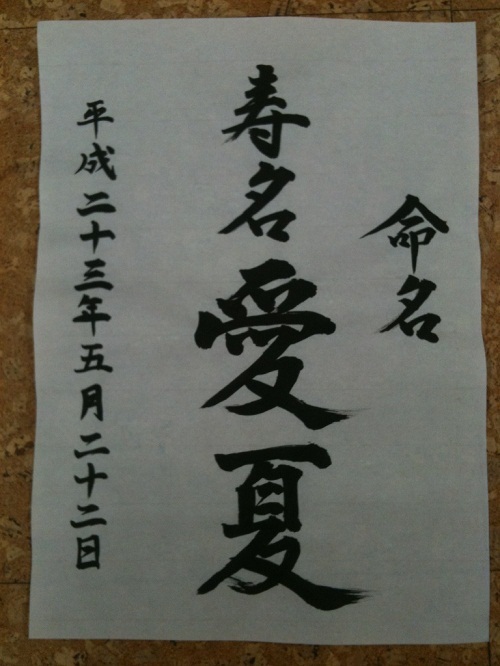 命名
寿名愛夏
平成二十三年五月二十二日